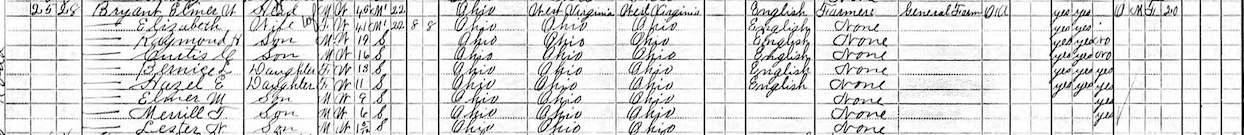 25 28 Bryant Elmer W Head M W 45 M1 22 Ohio West Virginia West Virginia English Farmer General Farm OA yes yes O M F 20
Elizabeth Wife F W 41 M1 22 8 8 Ohio Ohio Ohio English None yes yes
Raymond H Son M W 19 S Ohio Ohio Ohio English None yes yes no
Curtis Son M W 16 S Ohio Ohio Ohio English None yes yes no
Bernice E Daughter F W 13 S Ohio Ohio Ohio English None yes yes yes
Hazel E Daughter F W 11 S Ohio Ohio Ohio English None yes yes yes
Elmer M Son M W 9 S Ohio Ohio Ohio None yes
Merrill T. Son M W 6 S Ohio Ohio Ohio None yes
Lester W Son M W S Ohio Ohio Ohio None